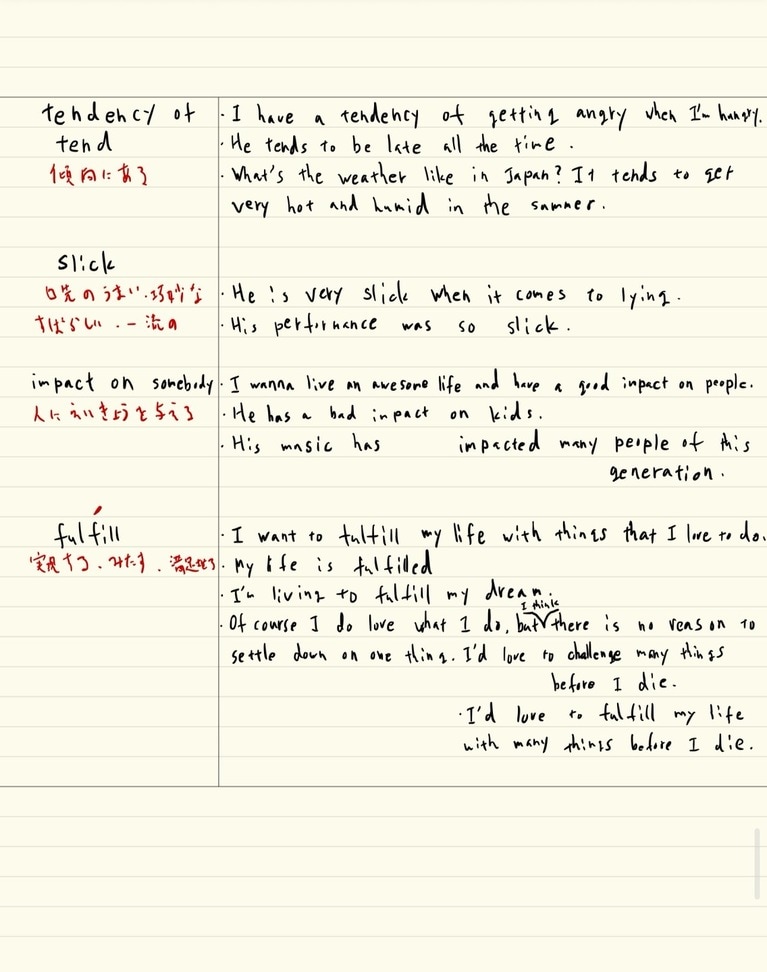 tendency of
· I have a tendency of getting angry when I'm hangry.
tend
· He tends to be late all the time.
傾向にある
· What's the weather like in Japan? It tends to get
very hot and humid in the summer.
slick
口先のうまい・巧妙な
· He is very slick when it comes to lying.
すばらしい・一流の
· His performance was so slick.
impact on somebody
· I wanna live an awesome life and have a good impact on people.
人にえいきょうを与える
· He has a bad impact on kids.
· His music has impacted many people of this
generation.
fulfill
· I want to fulfill my life with things that I love to do.
実現する、みたす、満足させる
· My life is fulfilled
· I'm living to fulfill my dream.
I think
· Of course I do love what I do, but there is no reason to
settle down on one thing. I'd love to challenge many things
before I die.
· I'd love to fulfill my life
with many things before I die.